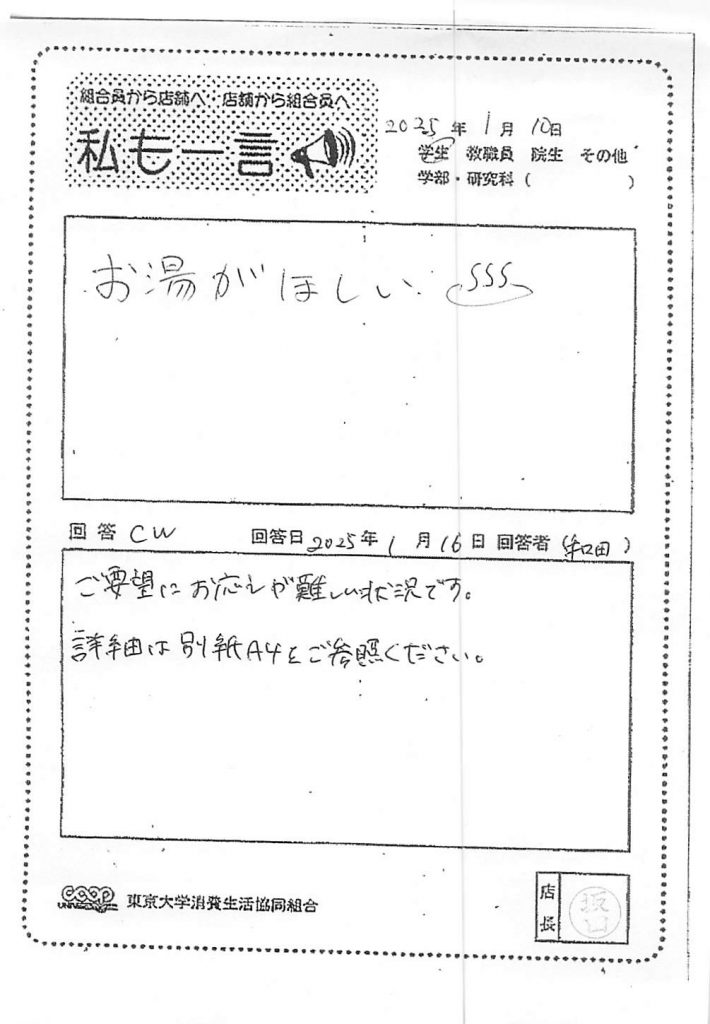 組合員から店舗へ・店舗から組合員へ
私も一言
2025年 1月 10日
学生 教職員 院生 その他
学部・研究科（　　　）
お湯がほしい
回答 CW 回答日 2025年 1月 16日 回答者（和田）
ご要望にお応えが難しい状況です。
詳細は別紙A4をご参照ください。
coop
東京大学消費生活協同組合
店長